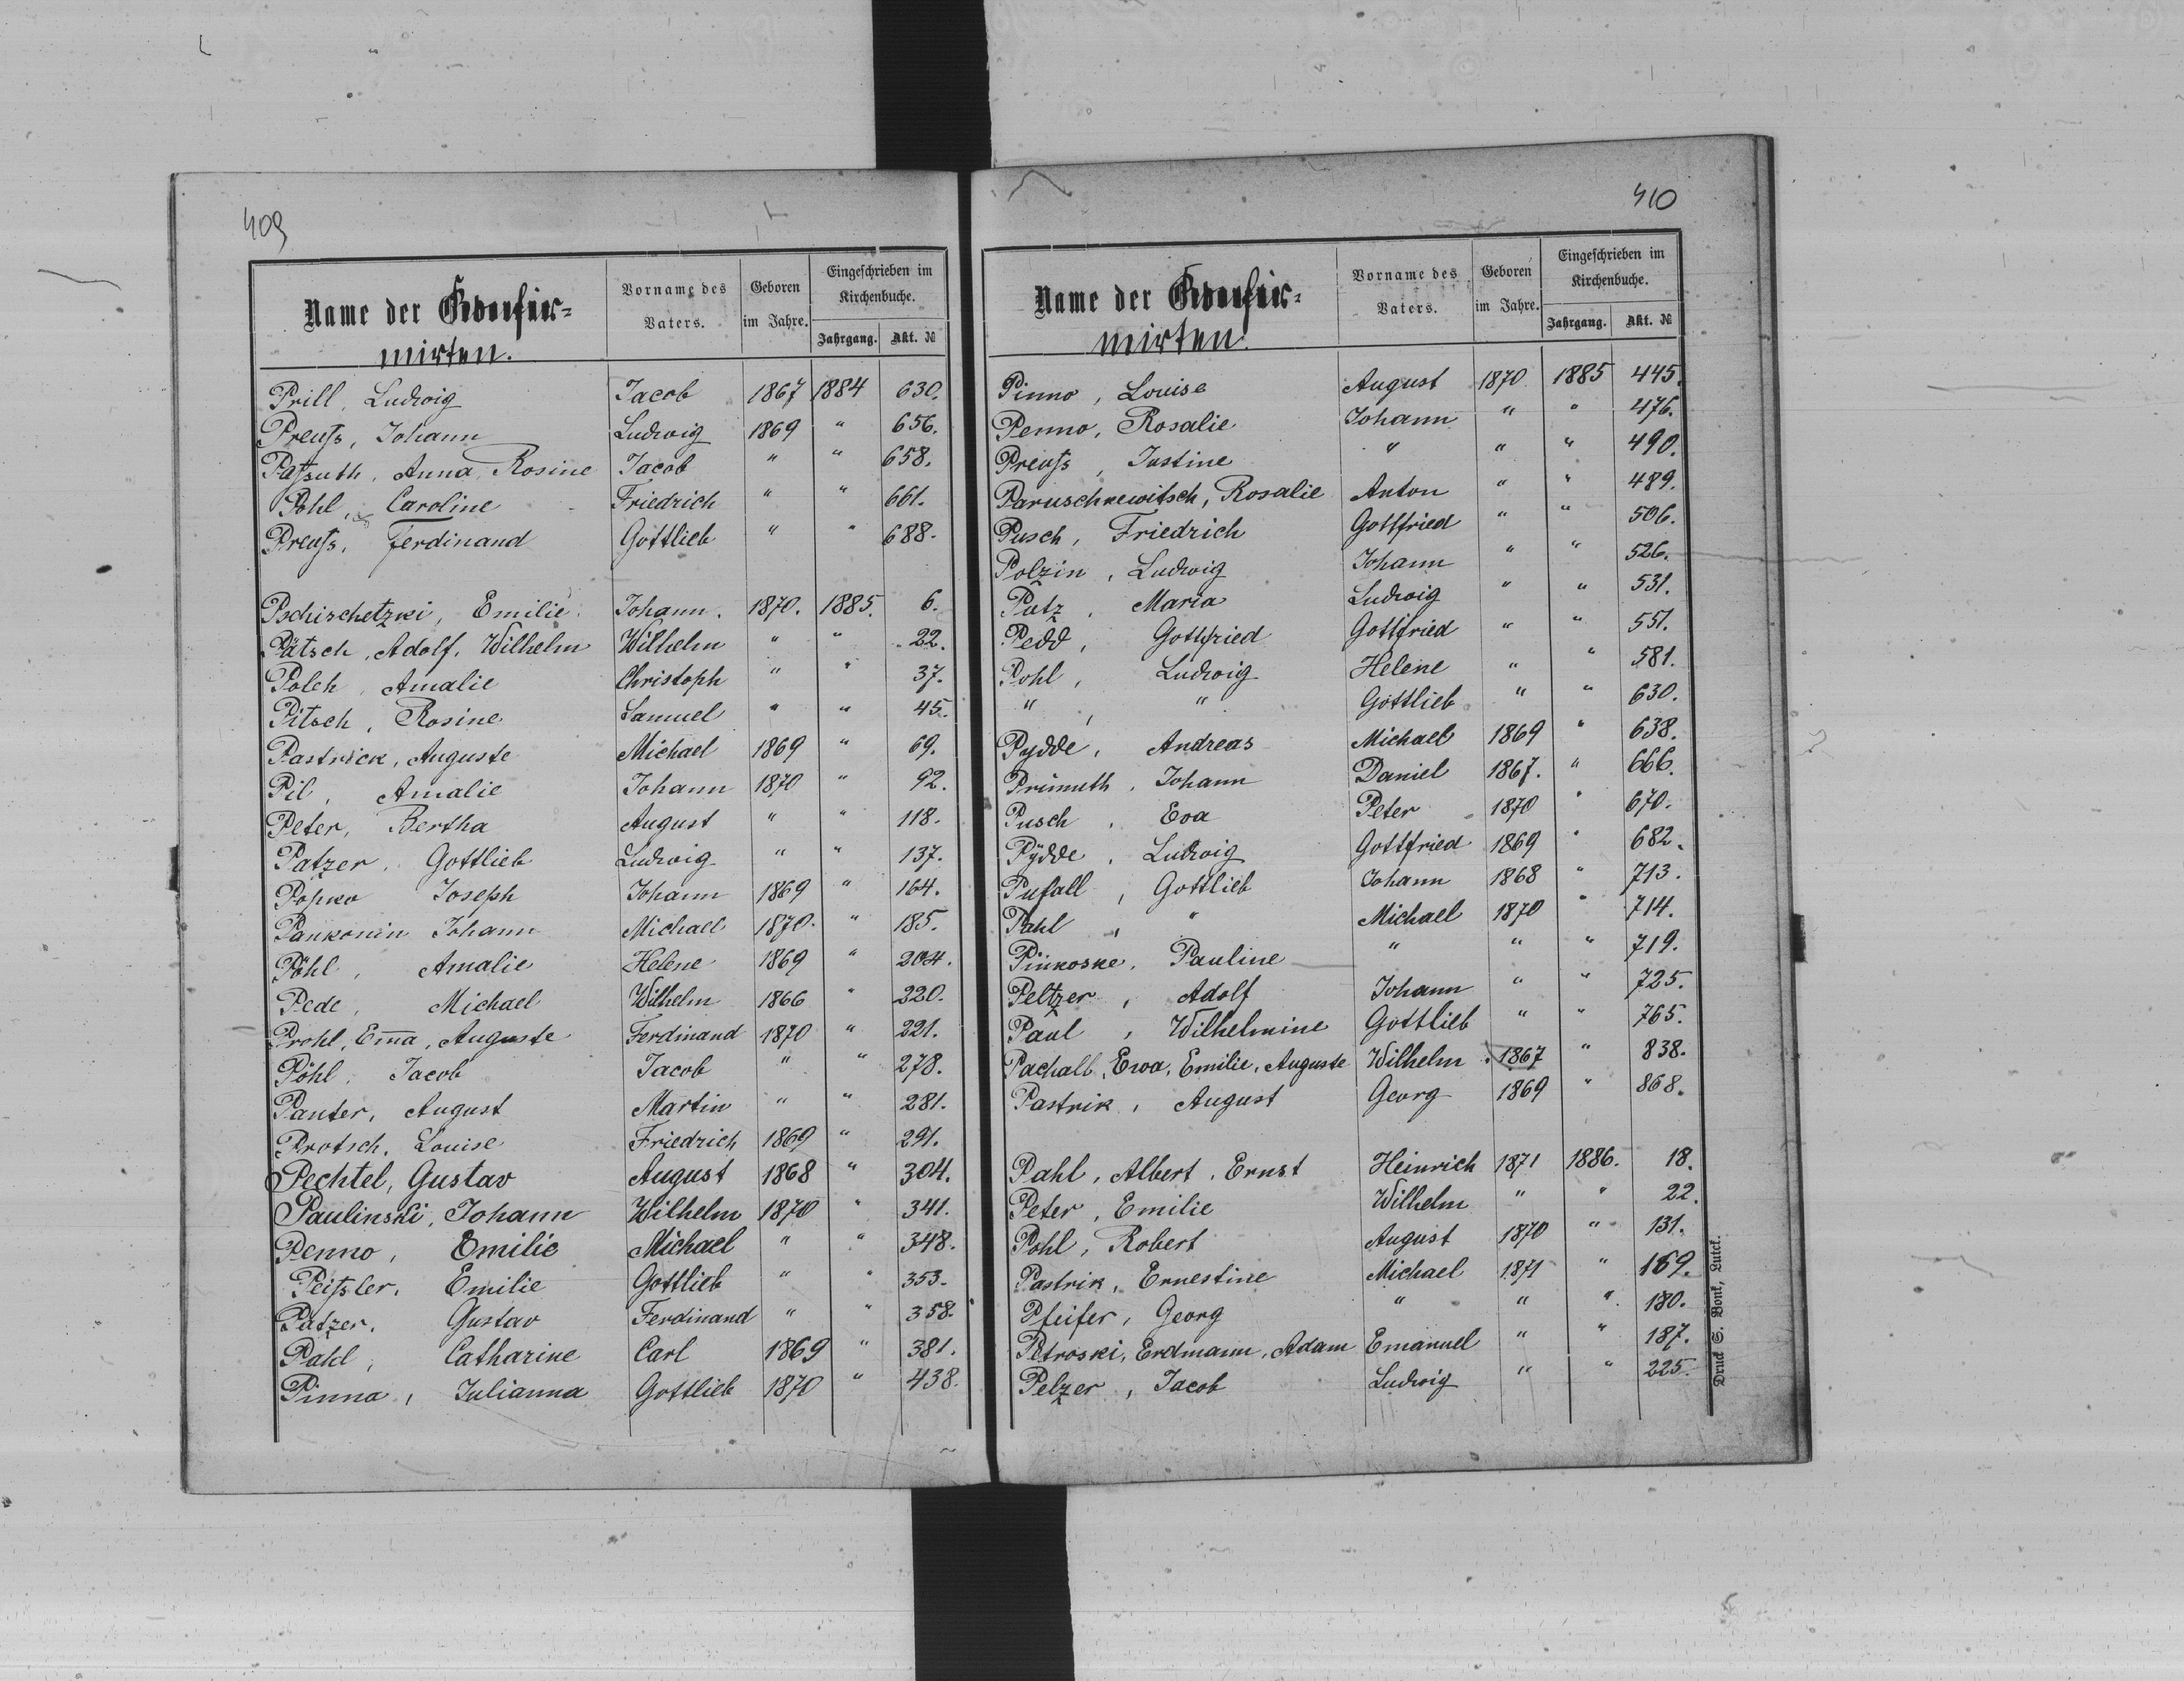 409
Name der Confir=
mirten.
Vorname des Vaters.
Geboren im Jahre.
Eingeschrieben im Kirchenbuche.
Jahrgang. Akt. №
Prill, Ludwig Jacob 1867 1884 630.
Preuß, Johann Ludwig 1869 " 656.
Paßuth, Anna, Rosine Jacob " " 658.
Pohl, Caroline Friedrich " " 661.
Preuß, Ferdinand Gottlieb " " 688.
Pschischetzki, Emilie Johann. 1870. 1885. 6.
Pätsch, Adolf, Wilhelm Wilhelm " " 22.
Polch, Amalie Christoph " " 37.
Pitsch, Rosine Samuel " " 45.
Pastrick, Auguste Michael 1869 " 69.
Pil, Amalie Johann 1870 " 92.
Peter, Bertha August " " 118.
Patzer, Gottlieb Ludwig " " 137.
Popko Joseph Johann 1869 " 164.
Pankonin Johann Michael 1870. " 185.
Pöhl, Amalie Helene 1869 " 204.
Pede, Michael Wilhelm 1866 " 220.
Prohl, Em̅a, Auguste Ferdinand 1870 " 221.
Pöhl, Jacob Jacob " " 278.
Panter, August Martin " " 281.
Protsch, Louise Friedrich 1869 " 291.
Pechtel, Gustav August 1868 " 304.
Paulinski, Johann Wilhelm 1870 " 341.
Penno, Emilie Michael " " 348.
Peißler, Emilie Gottlieb " " 353.
Patzer, Gustav Ferdinand " " 358.
Pahl, Catharine Carl 1869 " 381.
Pinna, Julianna Gottlieb 1870 " 438.
410
Name der Confir=
mirten.
Vorname des Vaters.
Geboren im Jahre.
Eingeschrieben im Kirchenbuche.
Jahrgang. Akt. №
Pinno, Louise August 1870 1885 445.
Penno, Rosalie Johann " " 476.
Preuß, Justine " " " 490.
Paruschkewitsch, Rosalie Anton " " 489.
Pusch, Friedrich Gottfried " " 506.
Polzin, Ludwig Johann " " 526.
Putz, Maria Ludwig " " 531.
Pedd, Gottfried Gottfried " " 551.
Pohl, Ludwig Helene " " 581.
", " Gottlieb " " 630.
Pydde, Andreas Michael 1869 " 638.
Primuth, Johann Daniel 1867. " 666.
Pusch, Eva Peter 1870 " 670.
Pÿdde, Ludwig Gottfried 1869 " 682.
Pufall, Gottlieb Johann 1868 " 713.
Pahl, " Michael 1870 " 714.
Pinkoske, Pauline " " " 719.
Peltzer, Adolf Johann " " 725.
Paul, Wilhelmine Gottlieb " " 765.
Pachalb, Ewa, Emilie, Auguste Wilhelm 1867 " 838.
Pastrik, August Georg 1869 " 868.
Pahl, Albert, Ernst Heinrich 1871 1886. 18.
Peter, Emilie Wilhelm " " 22.
Pohl, Robert August 1870 " 131.
Pastrik, Ernestine Michael 1871 " 169.
Pfeifer, Georg " " " 180.
Petroski, Erdmann, Adam Emanuel " " 187.
Pelzer, Jacob Ludwig " " 225.
Druck S. Bonk, Lutck.